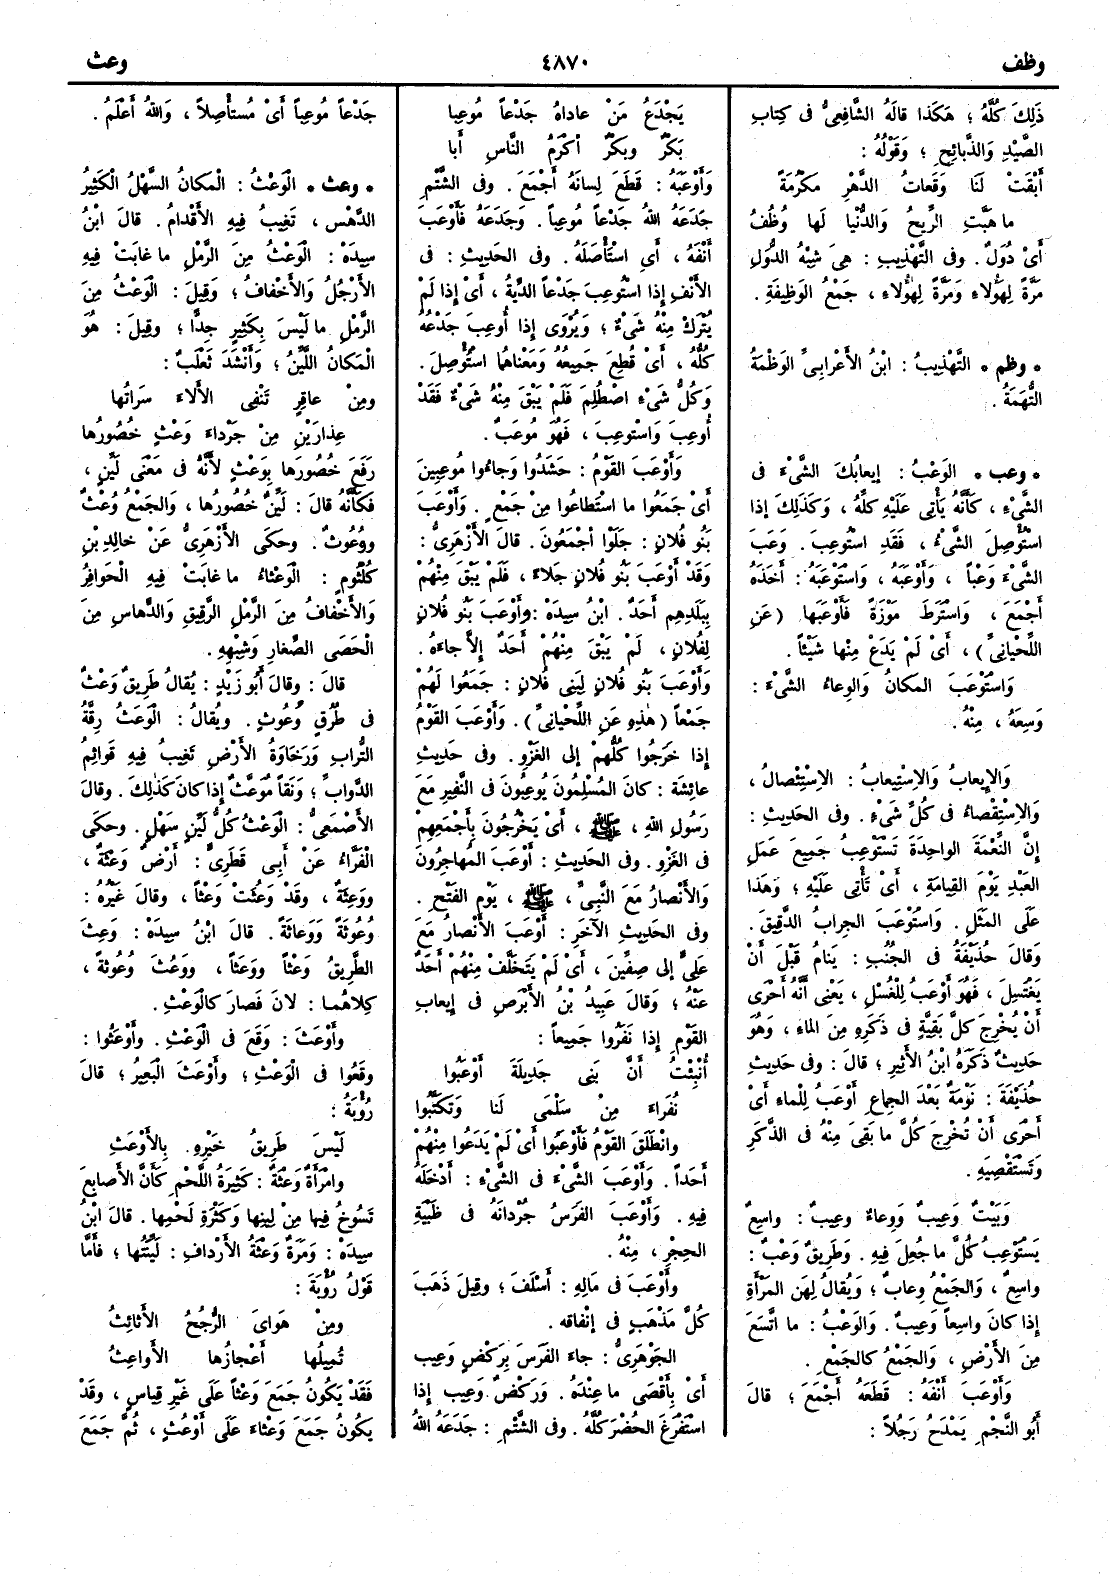 وظف
٤٨٧٠
وعث
ذٰلِكَ كُلَّهُ ؛ هٰكَذا قالَهُ الشَّافِعِىُّ فى كِتابِ
الصَّيْدِ وَالذَّبائِحِ ؛ وَقَوْلُهُ :
أَبْقَتْ لَنا وَقَعاتُ الدَّهْرِ مَكْرُمَةً
ما هَبَّتِ الرِّيحُ وَالدُّنْيا لَها وُظُفُ
أَىْ دُوَلٌ . وفى التَّهْذِيبِ : هِىَ شِبْهُ الدُّوَلِ
مَرَّةً لِهٰؤُلاءِ وَمَرَّةً لِهٰؤُلاءِ ، جَمْعُ الوَظِيفَةِ .
* وظم * التَّهْذِيبُ : ابْنُ الأَعْرابِىِّ الوَظْمَةُ
التُّهَمَةُ .
* وعب * الوَعْبُ : إِيعابُكَ الشَّىْءَ فى
الشَّىْءِ ، كَأَنَّهُ يَأْتِى عَلَيْهِ كُلِّهِ ، وَكَذٰلِكَ إِذا
اسْتُؤْصِلَ الشَّىْءُ ، فَقَدِ اسْتُوعِبَ . وَعَبَ
الشَّىْءَ وَعْباً ، وَأَوْعَبَهُ ، وَاسْتَوْعَبَهُ : أَخَذَهُ
أَجْمَعَ ، وَاسْتَرَطَ مَوْزَةً فَأَوْعَبَها ( عَنِ
اللِّحْيانِىِّ ) ، أَىْ لَمْ يَدَعْ مِنْها شَيْئاً .
وَاسْتَوْعَبَ المَكانُ وَالوِعاءُ الشَّىْءَ :
وَسِعَهُ ، مِنْهُ .
وَالإِيعابُ وَالاِسْتِيعابُ : الاِسْتِئْصالُ ،
وَالاِسْتِقْصاءُ فى كُلِّ شَىْءٍ . وفى الحَدِيثِ :
إِنَّ النِّعْمَةَ الواحِدَةَ تَسْتَوْعِبُ جَمِيعَ عَمَلِ
العَبْدِ يَوْمَ القِيامَةِ ، أَىْ تَأْتِى عَلَيْهِ ؛ وَهٰذا
عَلَى المَثَلِ . وَاسْتَوْعَبَ الجِرابُ الدَّقِيقَ .
وَقالَ حُذَيْفَةُ فى الجُنُبِ : يَنامُ قَبْلَ أَنْ
يَغْتَسِلَ ، فَهُوَ أَوْعَبُ لِلْغُسْلِ ، يَعْنِى أَنَّهُ أَحْرَى
أَنْ يُخْرِجَ كُلَّ بَقِيَّةٍ فى ذَكَرِهِ مِنَ الماءِ ، وَهُوَ
حَدِيثٌ ذَكَرَهُ ابْنُ الأَثِيرِ ؛ قالَ : وفى حَدِيثِ
حُذَيْفَةَ : نَوْمَةٌ بَعْدَ الجِماعِ أَوْعَبُ لِلْماءِ أَىْ
أَحْرَى أَنْ تُخْرِجَ كُلَّ ما بَقِىَ مِنْهُ فى الذَّكَرِ
وَتَسْتَقْصِيَهِ .
وَبَيْتٌ وَعِيبٌ وَوِعاءٌ وَعِيبٌ : واسِعٌ
يَسْتَوْعِبُ كُلَّ ما جُعِلَ فِيهِ . وَطَرِيقٌ وَعْبٌ :
واسِعٌ ، وَالجَمْعُ وِعابٌ ؛ وَيُقالُ لِهَنِ المَرْأَةِ
إِذا كانَ واسِعاً وَعِيبٌ . وَالوَعْبُ : ما اتَّسَعَ
مِنَ الأَرْضِ ، وَالجَمْعُ كالجَمْعِ .
وَأَوْعَبَ أَنْفَهُ : قَطَعَهُ أَجْمَعَ ؛ قالَ
أَبُو النَّجْمِ يَمْدَحُ رَجُلاً :
يَجْدَعُ مَنْ عاداهُ جَدْعاً مُوعِبا
بَكْرٌ وبَكْرٌ أَكْرَمُ النَّاسِ أَبا
وَأَوْعَبَهُ : قَطَعَ لِسانَهُ أَجْمَعَ . وفى الشَّتْمِ
جَدَعَهُ اللهُ جَدْعاً مُوعِباً . وَجَدَعَهُ فَأَوْعَبَ
أَنْفَهُ ، أَىِ اسْتَأْصَلَهُ . وفى الحَدِيثِ : فى
الأَنْفِ إِذا اسْتُوعِبَ جَدْعاً الدِّيَةُ ، أَىْ إِذا لَمْ
يُتْرَكْ مِنْهُ شَىْءٌ ؛ وَيُرْوَى إِذا أُوعِبَ جَدْعُهُ
كُلُّهُ ، أَىْ قُطِعَ جَمِيعُهُ وَمَعْناهُما اسْتُؤْصِلَ .
وَكُلُّ شَىْءٍ اصْطُلِمَ فَلَمْ يَبْقَ مِنْهُ شَىْءٌ فَقَدْ
أُوعِبَ وَاسْتُوعِبَ ، فَهُوَ مُوعَبٌ .
وَأَوْعَبَ القَوْمُ : حَشَدُوا وَجاءُوا مُوعِبِينَ
أَىْ جَمَعُوا ما اسْتَطاعُوا مِنْ جَمْعٍ . وَأَوْعَبَ
بَنُو فُلانٍ : جَلَوْا أَجْمَعُونَ . قالَ الأَزْهَرِىُّ :
وَقَدْ أَوْعَبَ بَنُو فُلانٍ جَلاءً ، فَلَمْ يَبْقَ مِنْهُمْ
بِبَلَدِهِم أَحَدٌ . ابْنُ سِيدَهْ : وَأَوْعَبَ بَنُو فُلانٍ
لِفُلانٍ ، لَمْ يَبْقَ مِنْهُمْ أَحَدٌ إِلاَّ جاءَهُ .
وَأَوْعَبَ بَنُو فُلانٍ لِبَنِى فُلانٍ : جَمَعُوا لَهُمْ
جَمْعاً ( هٰذِهِ عَنِ اللِّحْيانِىِّ ) . وَأَوْعَبَ القَوْمُ
إِذا خَرَجُوا كُلُّهُمْ إِلى الغَزْوِ . وفى حَدِيثِ
عائِشَةَ : كانَ المُسْلِمُونَ يُوعِبُونَ فى النَّفِيرِ مَعَ
رَسُولِ اللهِ ، ﷺ ، أَىْ يَخْرُجُونَ بِأَجْمَعِهِمْ
فى الغَزْوِ . وفى الحَدِيثِ : أَوْعَبَ المُهاجِرُونَ
وَالأَنْصارُ مَعَ النَّبِىِّ ، ﷺ ، يَوْمَ الفَتْحِ .
وفى الحَدِيثِ الآخَرِ : أَوْعَبَ الأَنْصارُ مَعَ
عَلِىٍّ إِلى صِفِّينَ ، أَىْ لَمْ يَتَخَلَّفْ مِنْهُمْ أَحَدٌ
عَنْهُ ؛ وَقالَ عَبِيدُ بْنُ الأَبْرَصِ فى إِيعابِ
القَوْمِ إِذا نَفَرُوا جَمِيعاً :
أُنْبِئْتُ أَنَّ بَنِى جَدِيلَةَ أَوْعَبُوا
نُفَراءَ مِنْ سَلْمَى لَنا وَتَكَتَّبُوا
وانْطَلَقَ القَوْمُ فَأَوْعَبُوا أَىْ لَمْ يَدَعُوا مِنْهُمْ
أَحَداً . وَأَوْعَبَ الشَّىْءَ فى الشَّىْءِ : أَدْخَلَهُ
فِيهِ . وَأَوْعَبَ الفَرَسُ جُرْدانَهُ فى ظَبْيَةِ
الحِجْرِ ، مِنْهُ .
وأَوْعَبَ فى مالِهِ : أَسْلَفَ ؛ وقِيلَ ذَهَبَ
كُلَّ مَذْهَبٍ فى إِنْفاقه .
الجَوْهَرِىُّ : جاءَ الفَرَسُ بِرَكْضٍ وَعِيبٍ
أَىْ بِأَقْصَى ما عِنْدَهُ . وَرَكْضٌ وَعِيبٌ إِذا
اسْتَفْرَغَ الحُضْرَ كُلَّهُ . وفى الشَّتْمِ : جَدَعَهُ اللهُ
جَدْعاً مُوعِباً أَىْ مُسْتَأْصِلاً ، وَاللهُ أَعْلَمُ .
* وعث * الوَعْثُ : الْمَكانُ السَّهْلُ الْكَثِيرُ
الدَّهْسِ ، تَغِيبُ فِيهِ الأَقْدامُ . قالَ ابْنُ
سِيدَهْ : الْوَعْثُ مِنَ الرَّمْلِ ما غابَتْ فِيهِ
الأَرْجُلُ وَالأَخْفافُ ؛ وَقِيلَ : الْوَعْثُ مِنَ
الرَّمْلِ ما لَيْسَ بِكَثِيرٍ جِدًّا ؛ وقِيلَ : هُوَ
الْمَكانُ اللَّيِّنُ ؛ وَأَنْشَدَ ثَعْلَبٌ :
ومِنْ عاقِرٍ تَنْفِى الأَلاءَ سَراتُها
عِذارَيْنِ مِنْ جَرْداءَ وَعْثٍ خُصُورُها
رَفَعَ خُصُورَها بِوَعْثٍ لأَنَّهُ فى مَعْنَى لَيِّنٍ ،
فَكَأَنَّهُ قالَ : لَيِّنٌ خُصُورُها ، وَالجَمْعُ وُعْثٌ
ووُعُوثٌ . وحكَى الأَزْهَرِىُّ عَنْ خالِدِ بْنِ
كُلْثُومٍ : الْوَعْثاءُ ما غابَتْ فِيهِ الْحَوافِرُ
وَالأَخْفافُ مِنَ الرَّمْلِ الرَّقِيقِ وَالدَّهاسِ مِنَ
الْحَصَى الصِّغارِ وَشِبْهِهِ .
قالَ : وقالَ أَبُو زَيْدٍ : يُقالُ طَرِيقٌ وَعْثٌ
فى طُرُقٍ وُعُوثٍ . ويُقالُ : الْوَعَثُ رِقَّةُ
التُّرابِ وَرَخاوَةُ الأَرْضِ تَغِيبُ فِيهِ قَوائِمُ
الدَّوابِّ ؛ وَنَقاً مُوَعَّثٌ إِذا كانَ كَذٰلِكَ . وقالَ
الأَصْمَعِىُّ : الْوَعْثُ كُلُّ لَيِّنٍ سَهْلٍ . وحكَى
الْفَرَّاءُ عَنْ أَبِى قَطَرِىٍّ : أَرْضٌ وَعْثَةٌ ،
ووَعِثَةٌ ، وَقَدْ وَعُثَتْ وَعْثاً ، وقالَ غَيْرُهُ :
وُعُوثَةً وَوَعاثَةً . قالَ ابْنُ سِيدَهْ : وَعِثَ
الطَّرِيقُ وَعْثاً ووَعَثاً ، ووَعُثَ وُعُوثَةً ،
كِلاهُما : لانَ فَصارَ كالْوَعْثِ .
وأَوْعَثَ : وَقَعَ فى الْوَعْثِ . وأَوْعَثُوا :
وقَعُوا فى الْوَعْثِ ؛ وأَوْعَثَ الْبَعِيرُ ؛ قالَ
رُؤْبَةُ :
لَيْسَ طَرِيقُ خَيْرِهِ بِالأَوْعَثِ
وامْرَأَةٌ وَعْثَةٌ : كَثِيرَةُ اللَّحْمِ كَأَنَّ الأَصابِعَ
تَسُوخُ فِيها مِنْ لِينِها وَكَثْرَةِ لَحْمِها . قالَ ابْنُ
سِيدَهْ : وَمَرَةٌ وَعْثَةُ الأَرْدافِ : لَيِّنَتُها ؛ فَأَمَّا
قَوْلُ رُؤْبَةَ :
ومِنْ هَواىَ الرُّجُحُ الأَثائِثُ
تُمِيلُها أَعْجازُها الأَواعِثُ
فَقَدْ يَكُونُ جَمَعَ وَعْثاً عَلَى غَيْرِ قِياسٍ ، وقَدْ
يَكُونُ جَمَعَ وَعْثاءَ عَلَى أَوْعُثٍ ، ثُمَّ جَمَعَ